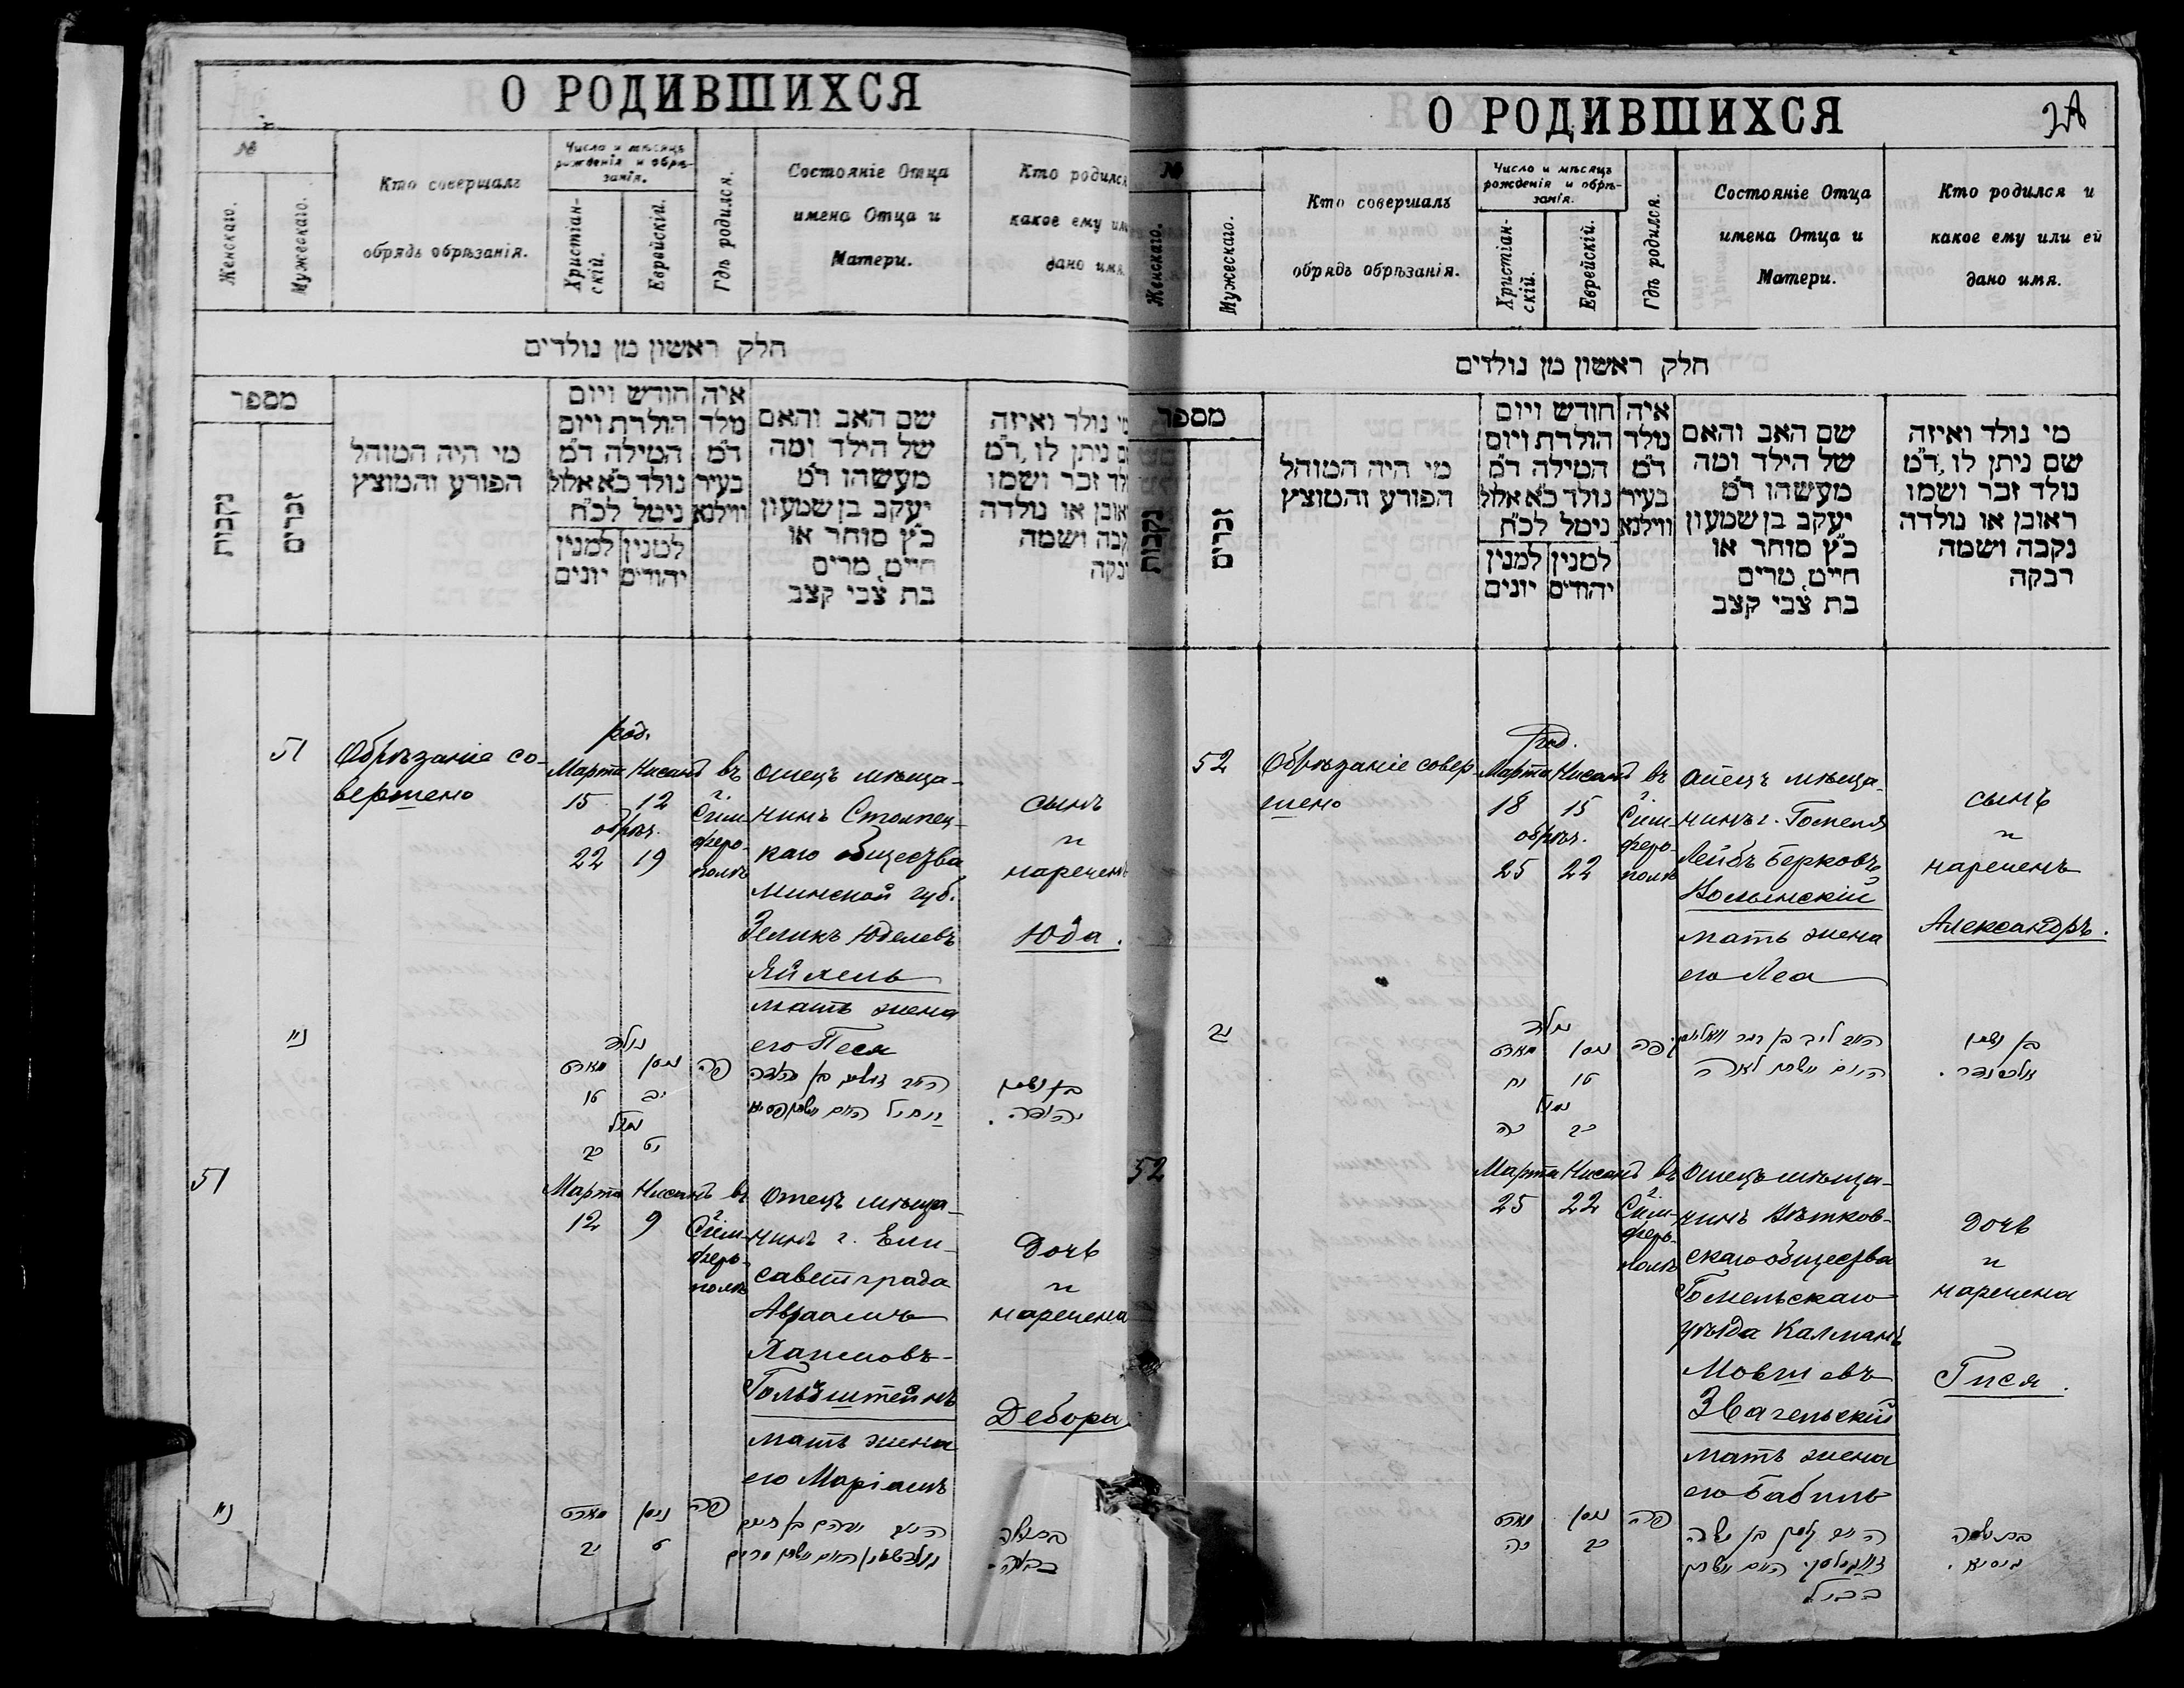 О РОДИВШИХСЯ
№
Женскаго.
Мужескаго.
Кто совершалъ
обрядъ обрѣзанія.
Число и мѣсяцъ
рожденія и обрѣ-
занія.
Христіан-
скій.
Еврейскій.
Гдѣ родился.
Состояніе Отца
имена Отца и
Матери.
Кто родился
какое ему
дано имя.
חלק ראשון מן נולדים
מספר
נקבות
זכרים
מי היה המוהל
הפורע והמוצץ
חודש ויום
הולדת ויום
המילה ד״מ
נולד כ״א אלול
ניטל לכ״ח
למנין
יהודים
למנין
יונים
איה
מלד
ד״מ
בעיר
ווילנא
שם האב והאם
של הילד ומה
מעשהו ד״מ
יעקב בן שמעון
כ״ץ סוחר או
חיים, מרים
בת צבי קצב
נולד ואיזה
ניתן לו, ד״מ
זכר ושמו
או נולדה
ושמה
51
Обрѣзаніе со-
вершено
род.
Марта Нисана
15 12
обрѣз.
22 19
въ
г.
Сим-
феро-
полѣ
Отецъ мѣща-
нинъ Столпец-
каго общества
Минской губ.
Зеликъ Юделевъ
мать жена
его Песя
сынъ
и
нареченъ
Юда.
נולד
מארט ניסן
טו יב
נימול
כב יט
פה
בן ושמו
יהודה.
51
Марта Нисанъ
12 9
въ
г.
Сим-
феро-
полѣ
Отецъ мѣща-
нинъ г. Ели-
саветграда
Авраамъ
Хаимовъ-
Гольдштейнъ
мать жена
его Маріамъ
Дочь
и
наречена
Дебора
מארט ניסן
יב ט
פה
О РОДИВШИХСЯ
№
Женскаго.
Мужескаго.
Кто совершалъ
обрядъ обрѣзанія.
Число и мѣсяцъ
рожденія и обрѣ-
занія.
Христіан-
скій.
Еврейскій.
Гдѣ родился.
Состояніе Отца
имена Отца и
Матери.
Кто родился и
какое ему или ей
дано имя.
חלק ראשון מן נולדים
מספר
נקבות
זכרים
מי היה המוהל
הפורע והמוצץ
חודש ויום
הולדת ויום
המילה ד״מ
נולד כ״א אלול
ניטל לכ״ח
למנין
יהודים
למנין
יונים
איה
נולד
ד״מ
בעיר
ווילנא
שם האב והאם
של הילד ומה
מעשהו ד״מ
יעקב בן שמעון
כ״ץ סוחר או
חיים, מרים
בת צבי קצב
מי נולד ואיזה
שם ניתן לו, ד״מ
נולד זכר ושמו
ראובן או נולדה
נקבה ושמה
רבקה
52
Обрѣзаніе совер-
шено
род.
Марта Нисанъ
18 15
обрѣз.
25 22
въ
г.
Сим-
феро-
полѣ
Отецъ мѣща-
нинъ г. Гомеля
Лейбъ Берковъ
Волынскій
мать жена
его Леа
сынъ
и
нареченъ
Александръ.
נולד
מארט ניסן
יח טו
נימול
כה כב
פה
בן ושמו
אלכסנדר.
52
Марта Нисанъ
25 22
въ
г.
Сим-
феро-
полѣ
Отецъ мѣща-
нинъ Вѣтков-
скаго общества
Гомельскаго
уѣзда Калманъ
Мовшевъ
Звагельскій
мать жена
его Бабиль
Дочь
и
наречена
Гися.
מארט ניסן
כה כב
פה